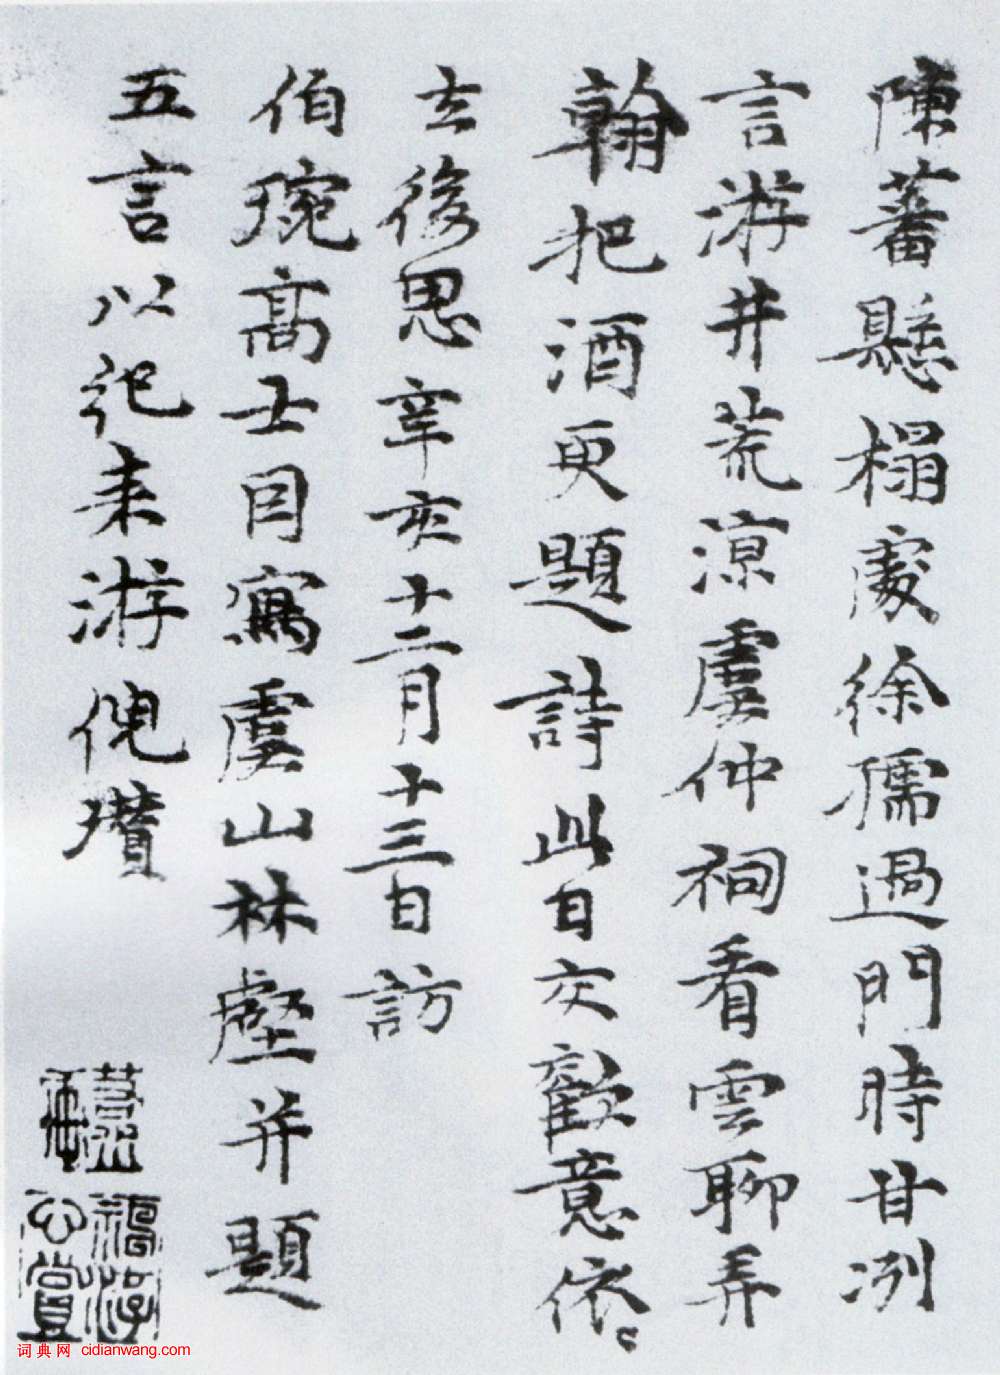 陳蕃懸榻處徐孺過門時甘冽
言游井荒涼虞仲祠看雲聊弄
翰把酒更題詩此日交歡意依〻
去後思辛亥十二月十三日訪
伯琬高士因寫虞山林壑并題
五言以紀來游倪瓚
词典网 cidianwang.com